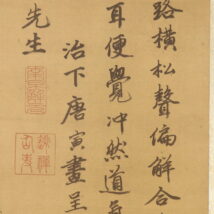 路橫松聲偏解合
耳便覺冲然道氣
治下唐寅畫呈
先生